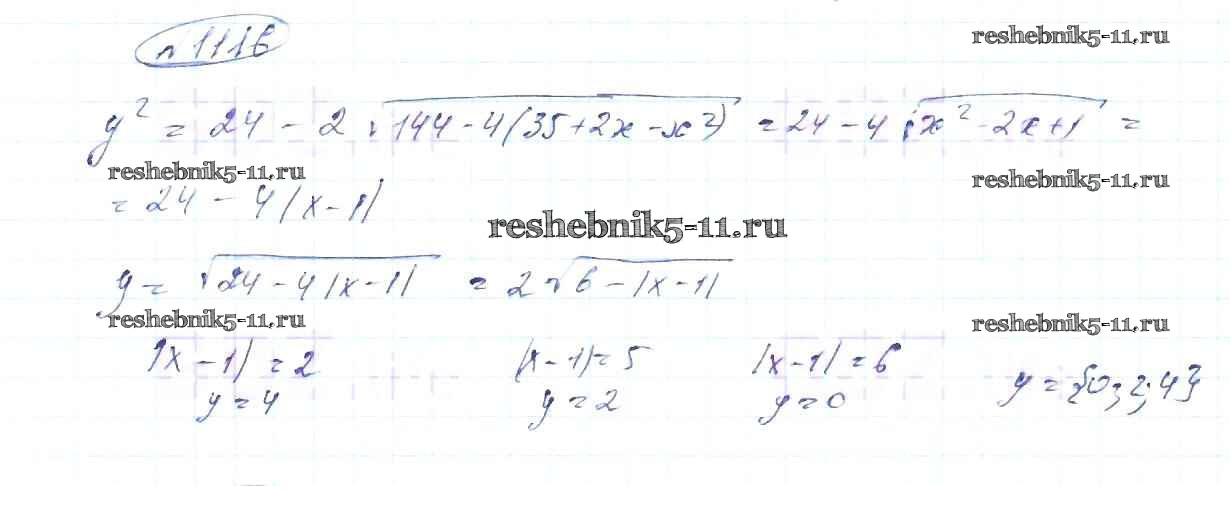 №1116
reshebnik5-11.ru
y² = 24 - 2√(144 - 4(35 + 2x - x²)) = 24 - 4√(x² - 2x + 1) =
reshebnik5-11.ru
reshebnik5-11.ru
= 24 - 4|x - 1|
reshebnik5-11.ru
y = √(24 - 4|x - 1|) = 2√(6 - |x - 1|)
reshebnik5-11.ru
reshebnik5-11.ru
|x - 1| = 2 |x - 1| = 5 |x - 1| = 6
y = 4 y = 2 y = 0 y = {0; 2; 4}